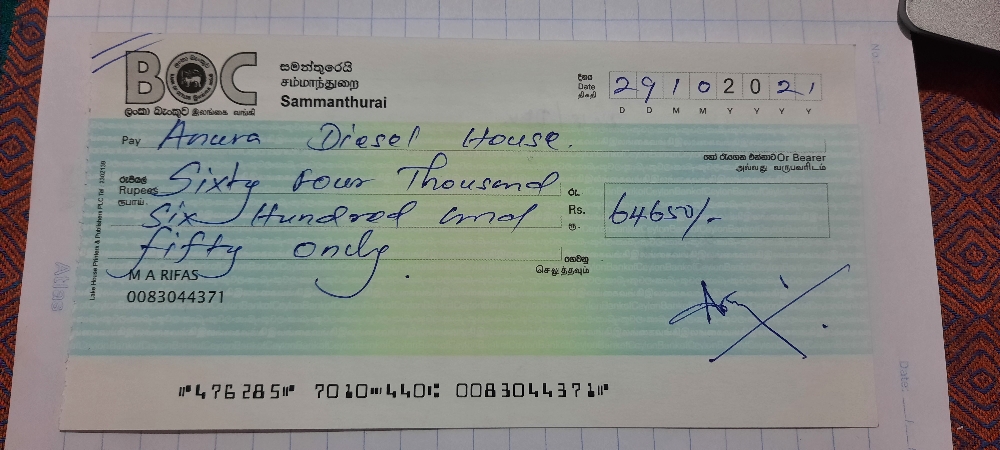 BOC
ලංකා බැංකුව இலங்கை வங்கி
සමන්තුරෙයි
சம்மாந்துறை
Sammanthurai
දිනය
Date
திகதி
29 10 2021
D D M M Y Y Y Y
Pay Anura Diesel House.
හෝ රැගෙන එන්නාට Or Bearer
அல்லது வருபவரிடம்
රුපියල්
Rupees Sixty Four Thousand
ரூபாய்
Six Hundred and
fifty only.
රු.
Rs. 64650/-
ரூ.
ගෙවනු
செலுத்தவும்
M A RIFAS
0083044371
Lake House Printers & Publishers PLC
⑈476285⑈ 7010⑉440⑆ 0083044371⑈